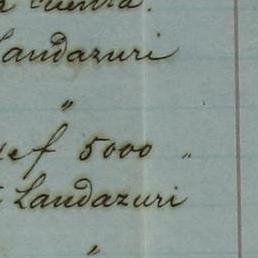 cuenta.
Landazuri
"
ef 5000 "
Landazuri
"